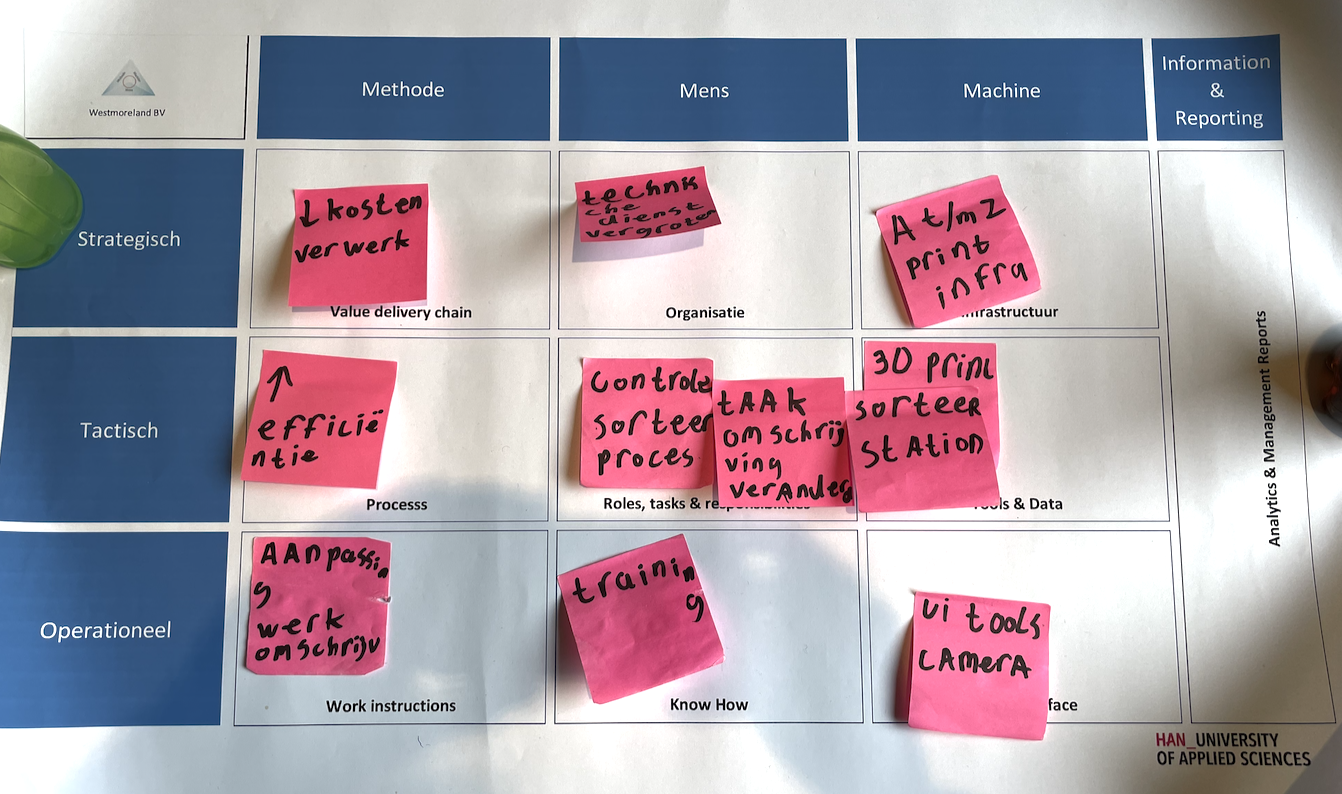 Westmoreland BV
Methode
Mens
Machine
Information
&
Reporting
Strategisch
↓ kosten
verwerk
Value delivery chain
technis
che
dienst
vergroten
Organisatie
At/m2
print
infra
frastructuur
Tactisch
↑
efficië
ntie
Processs
Controle
sorteer
proces
tAAk
omschrij
ving
verAnder
Roles, tasks &
3D print
sorteer
stAtion
ls & Data
Operationeel
AAnpassin
g
werk
omschrijv
Work instructions
trainin
g
Know How
ui tools
cAmerA
face
Analytics & Management Reports
HAN_UNIVERSITY
OF APPLIED SCIENCES